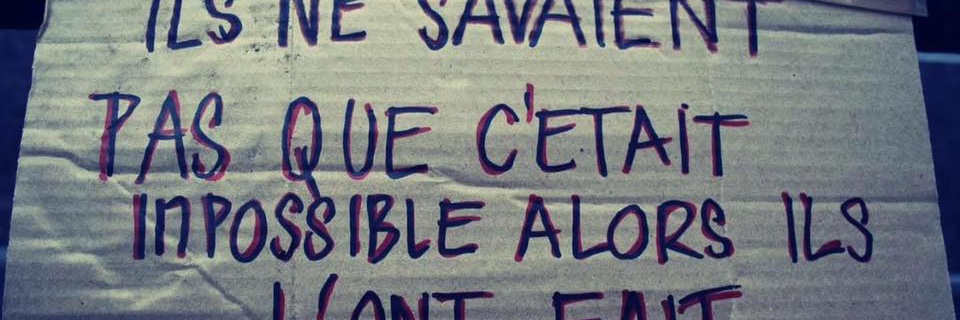 ILS NE SAVAIENT
PAS QUE C'ETAIT
INPOSSIBLE ALORS ILS
L'ONT FAIT